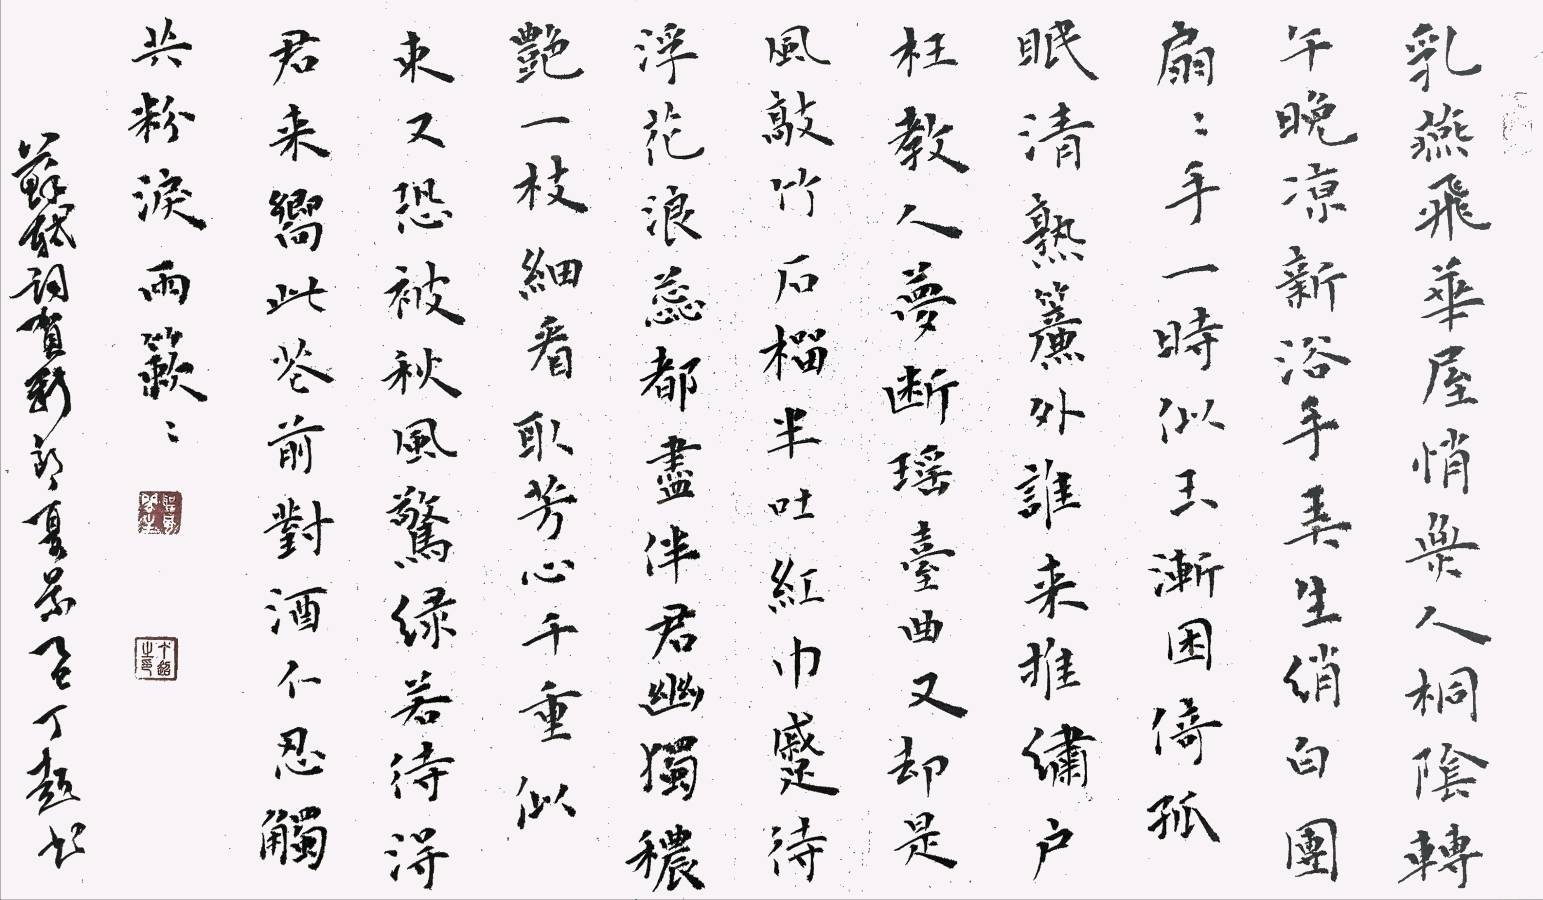 乳燕飛華屋悄無人桐陰轉
午晚凉新浴手弄生綃白團
扇〻手一時似玉漸困倚孤
眠清熟簾外誰来推繡户
枉教人夢断瑶臺曲又却是
風敲竹石榴半吐紅巾蹙待
浮花浪蕊都盡伴君幽獨穠
艷一枝細看取芳心千重似
束又恐被秋風驚緑若待得
君来嚮此花前對酒不忍觸
共粉淚兩簌〻
蘇軾詞賀新郎夏景 丁超书